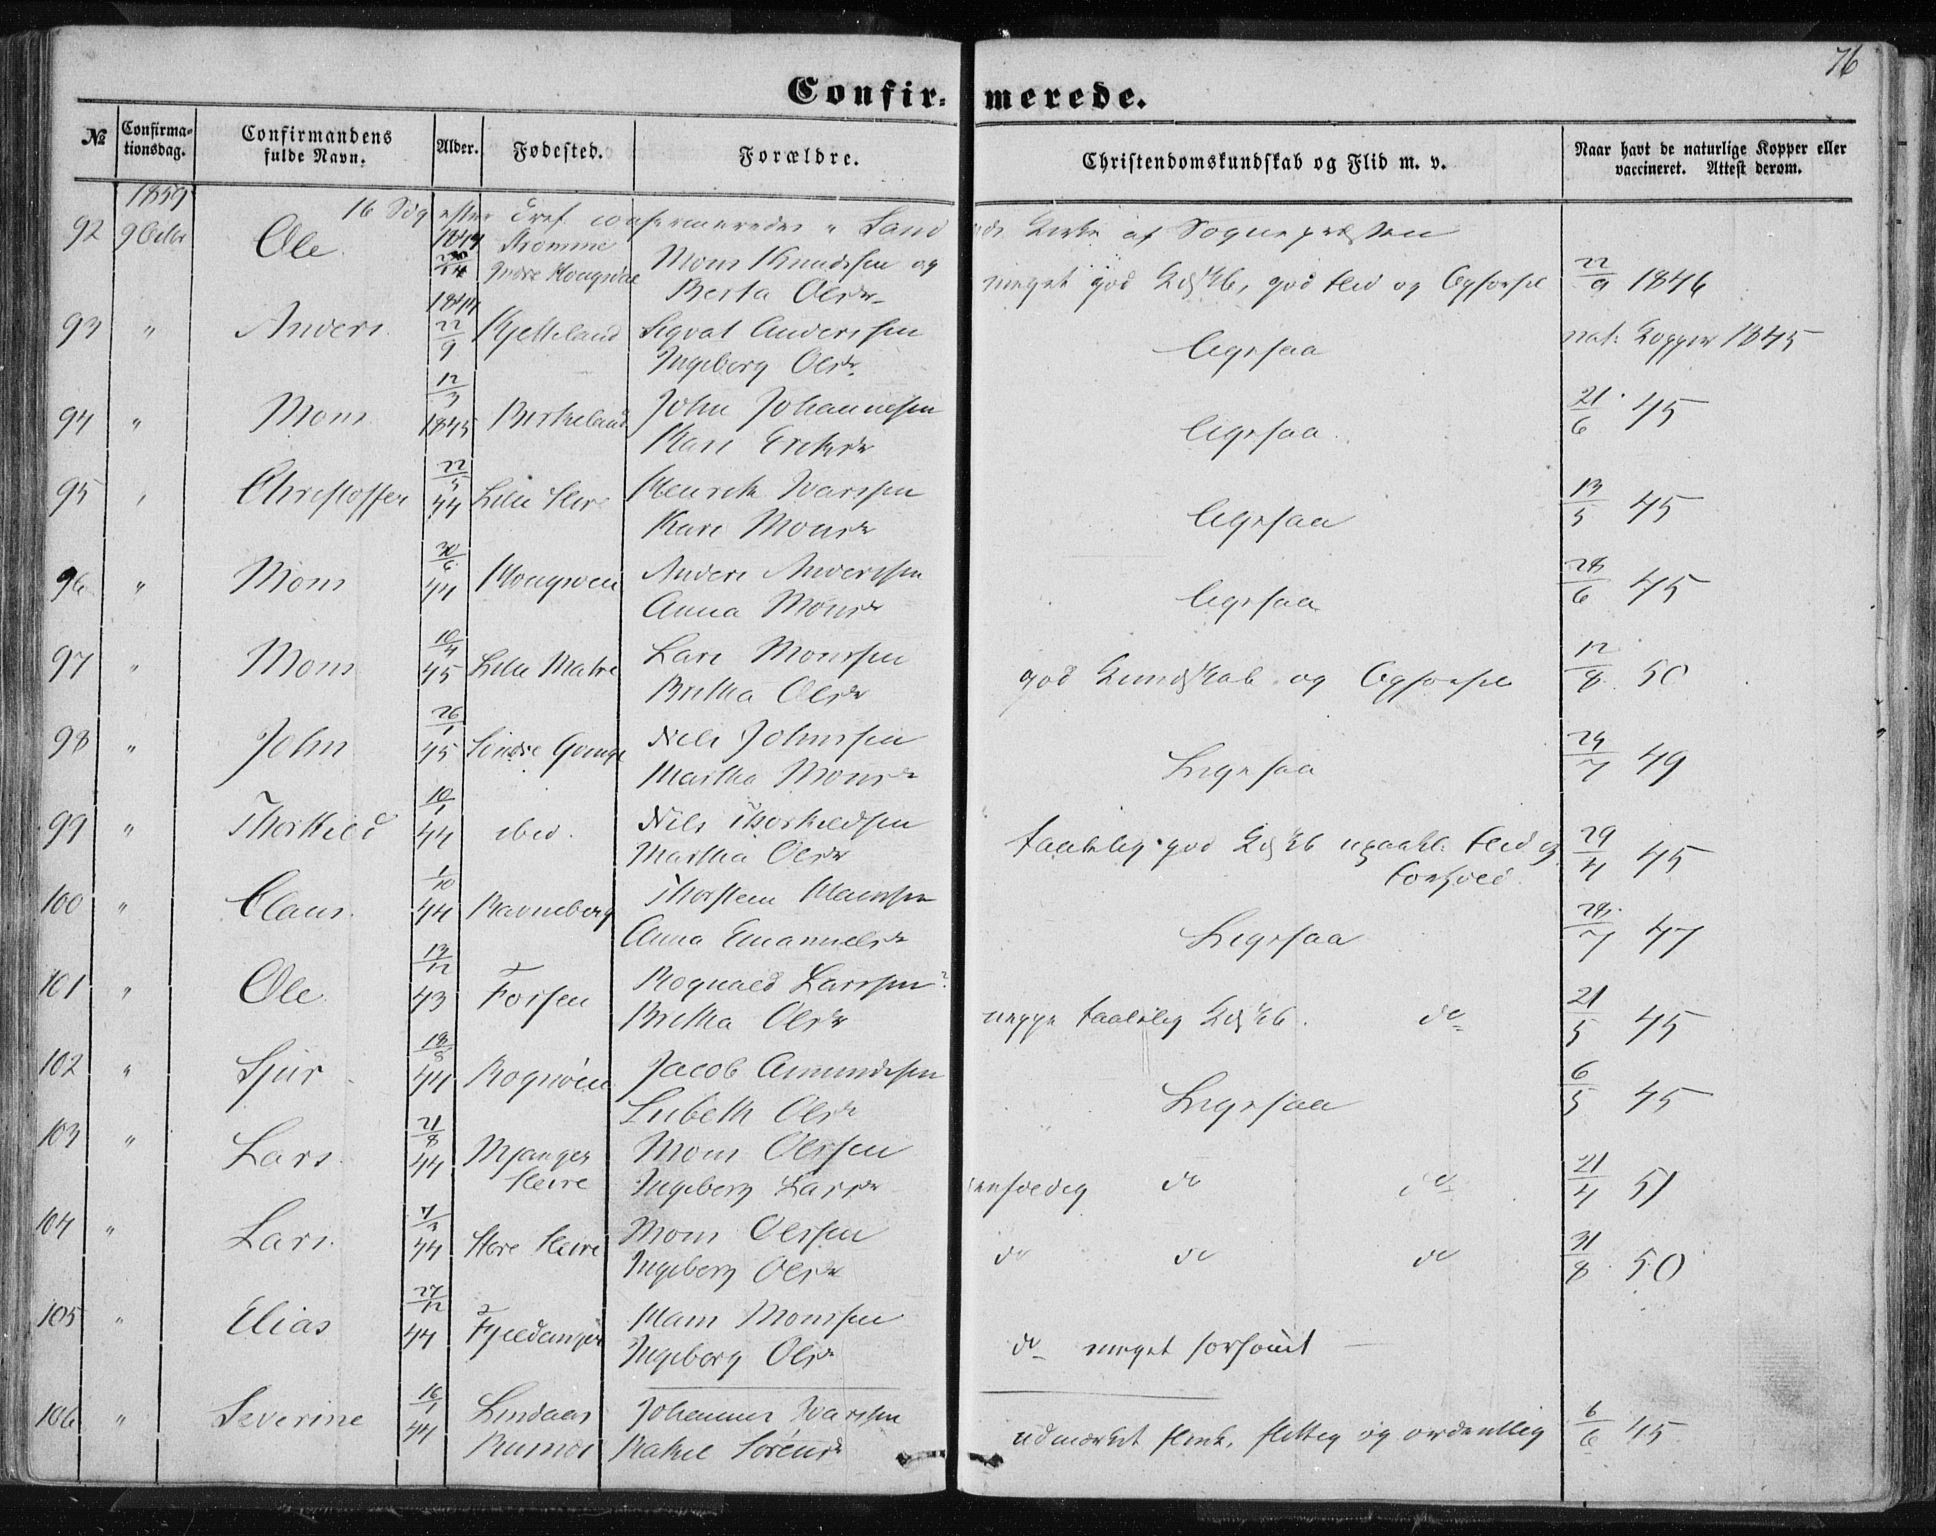 76
Confirmerede.
№ Confirmationsdag. Confirmandens fulde Navn. Alder. Fødested. Forældre. Christendomskundskab og Flid m. v. Naar havt de naturlige Kopper eller vaccineret. Attest derom.
1859
16 Søg efter Tref confirmeredes i Land Kirke af Sognepræsten
92 9 Octbr Ole 1844 Mons Knudssen og Berta Olsdr meget god Kdskb, god Flid og Opførsel 22/9 1846
93 " Anders 1844 22/9 Kjetteland Sigvat Anderssen Ingeborg Olsdr Ligesaa nat: Kopper 1845
94 " Mons 12/3 1845 Birkeland John Johannessen Kari Eriksdr Ligesaa 21/6 45
95 " Christoffer 22/5 44 Lille Henrik Ivarssen Kari Monsdr Ligesaa 13/5 45
96 " Mons 30/6 44 Anders Anderssen Anna Monsdr Ligesaa 28/6 45
97 " Mons 10/4 45 Lille Matre Lars Monssen Britha Olsdr god Kundskab og Opførsel 12/8 50
98 " John 26/1 45 Nils Johnssen Martha Monsdr Ligesaa 24/7 49
99 " Thorkild 10/1 44 ibid. Nils Thorkildsen Martha Olsdr taalelig god Kdskb Flid og Forhold 29/4 45
100 " Claus 1/10 44 Ravneberg Thorsten Anna Emanuelsdr Ligesaa 28/7 47
101 " Ole 13/12 43 Fossen Rognald Larssen? Britha Olsdr neppe taalelig Kdskb. do 21/5 45
102 " Sjur 18/8 44 Jacob Amundssen Lisbeth Olsdr Ligesaa 6/5 45
103 " Lars 21/8 44 Mjanger Mons Olssen Ingeborg Larsdr eenfoldig do do 21/4 51
104 " Lars 7/3 44 Store Mons Olssen Ingeborg Olsdr do do do 31/8 50
105 " Elias 27/12 44 Fjeldanger Hans Monssen Ingeborg Olsdr do meget forsømt
106 " Severine 16/1 44 Lindaas Johannes Ivarssen Rakel Sørensdr udmærket flink, flittig og ordentlig 6/6 45